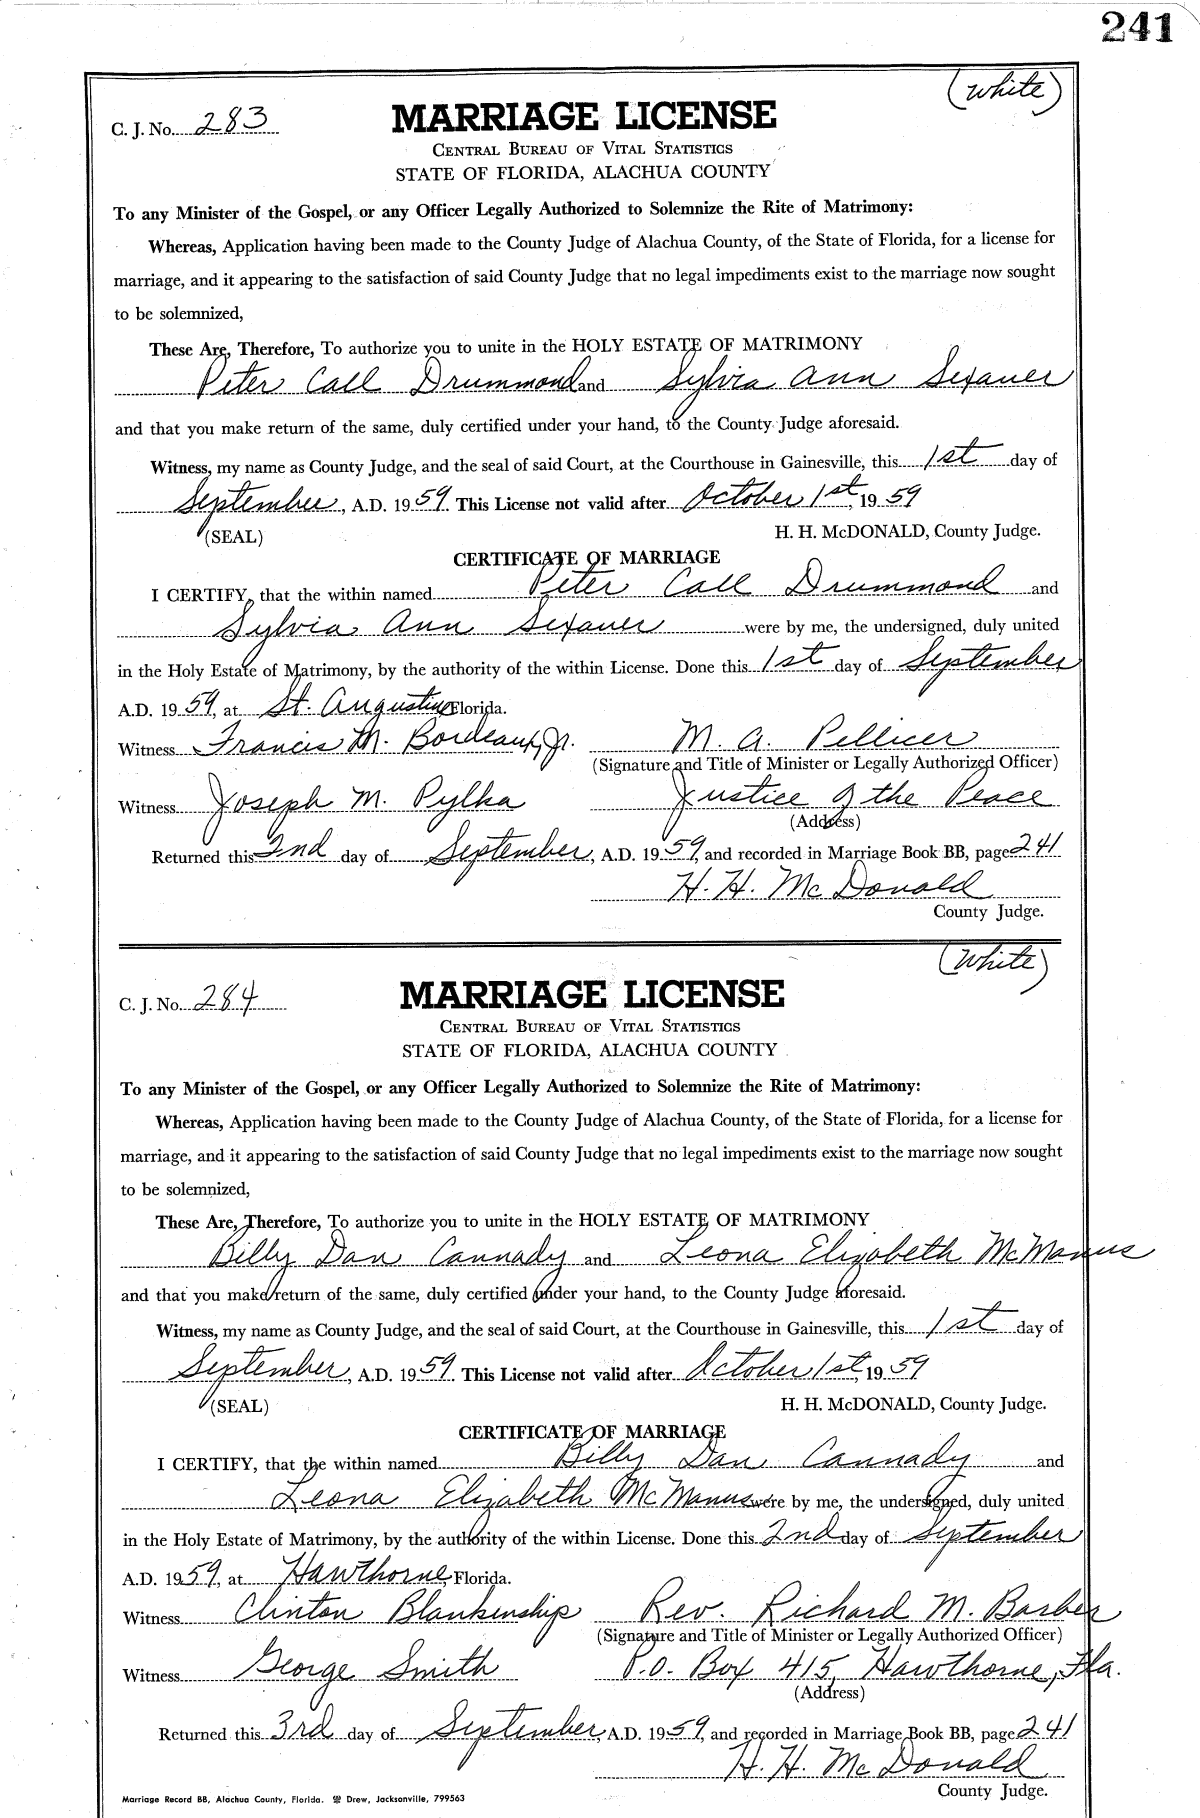 241
(White)
C. J. No. 283
MARRIAGE LICENSE
CENTRAL BUREAU OF VITAL STATISTICS
STATE OF FLORIDA, ALACHUA COUNTY
To any Minister of the Gospel, or any Officer Legally Authorized to Solemnize the Rite of Matrimony:
Whereas, Application having been made to the County Judge of Alachua County, of the State of Florida, for a license for
marriage, and it appearing to the satisfaction of said County Judge that no legal impediments exist to the marriage now sought
to be solemnized,
These Are, Therefore, To authorize you to unite in the HOLY ESTATE OF MATRIMONY
Peter Call Drummond and Sylvia Ann Sexauer
and that you make return of the same, duly certified under your hand, to the County Judge aforesaid.
Witness, my name as County Judge, and the seal of said Court, at the Courthouse in Gainesville, this 1st day of
September, A.D. 1959. This License not valid after October 1st, 1959
(SEAL) H. H. McDONALD, County Judge.
CERTIFICATE OF MARRIAGE
I CERTIFY, that the within named Peter Call Drummond and
Sylvia Ann Sexauer were by me, the undersigned, duly united
in the Holy Estate of Matrimony, by the authority of the within License. Done this 1st day of September
A.D. 1959, at St. Augustine, Florida.
Witness Francis M. Bordeaux, Jr. M. A. Pellicer
(Signature and Title of Minister or Legally Authorized Officer)
Witness Joseph M. Pylka Justice of the Peace
(Address)
Returned this 2nd day of September, A.D. 1959, and recorded in Marriage Book BB, page 241
H. H. McDonald
County Judge.
(White)
C. J. No. 284
MARRIAGE LICENSE
CENTRAL BUREAU OF VITAL STATISTICS
STATE OF FLORIDA, ALACHUA COUNTY
To any Minister of the Gospel, or any Officer Legally Authorized to Solemnize the Rite of Matrimony:
Whereas, Application having been made to the County Judge of Alachua County, of the State of Florida, for a license for
marriage, and it appearing to the satisfaction of said County Judge that no legal impediments exist to the marriage now sought
to be solemnized,
These Are, Therefore, To authorize you to unite in the HOLY ESTATE OF MATRIMONY
Billy Dan Cannady and Leona Elizabeth McManus
and that you make return of the same, duly certified under your hand, to the County Judge aforesaid.
Witness, my name as County Judge, and the seal of said Court, at the Courthouse in Gainesville, this 1st day of
September, A.D. 1959. This License not valid after October 1st, 1959
(SEAL) H. H. McDONALD, County Judge.
CERTIFICATE OF MARRIAGE
I CERTIFY, that the within named Billy Dan Cannady and
Leona Elizabeth McManus were by me, the undersigned, duly united
in the Holy Estate of Matrimony, by the authority of the within License. Done this 2nd day of September
A.D. 1959, at Hawthorne, Florida.
Witness Clinton Blankenship Rev. Richard M. Barber
(Signature and Title of Minister or Legally Authorized Officer)
Witness George Smith P.O. Box 415, Hawthorne, Fla.
(Address)
Returned this 3rd day of September, A.D. 1959, and recorded in Marriage Book BB, page 241
H. H. McDonald
County Judge.
Marriage Record BB, Alachua County, Florida. Drew, Jacksonville, 799563